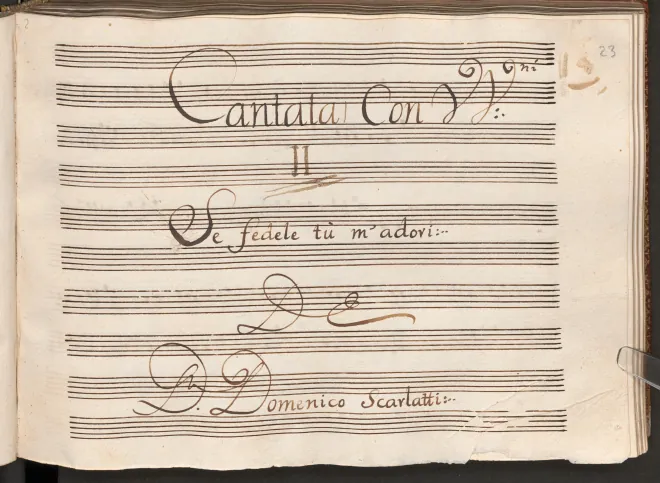 23
Cantata Con VV.ni
II
Se fedele tù m'adori:..
De
D. Domenico Scarlatti:..